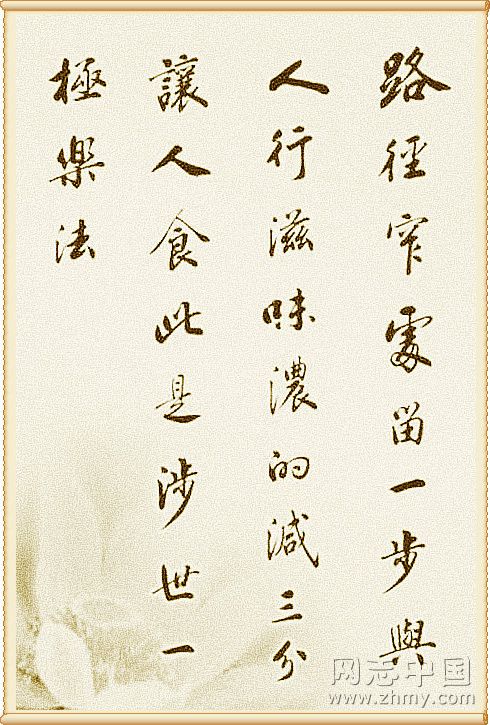 路徑窄處留一步與
人行滋味濃的減三分
讓人食此是涉世一
極樂法
网志中国
www.zhmy.com